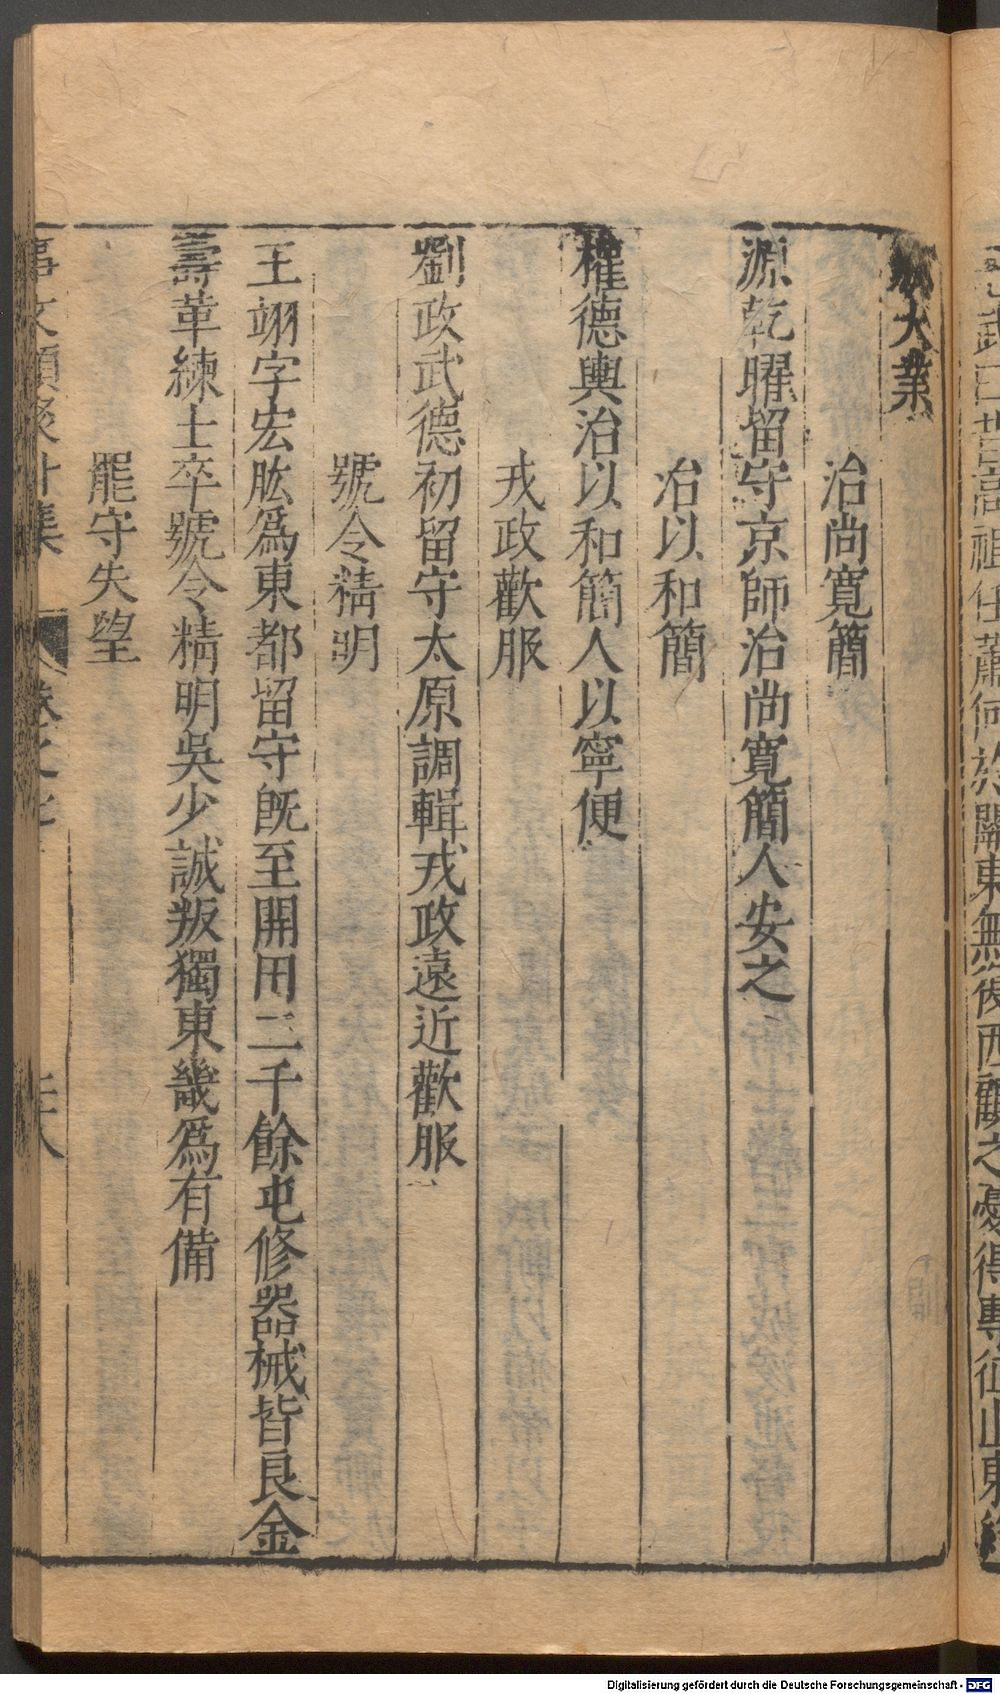 大業
治尚寬簡
源乾曜留守京師治尚寬簡人安之
治以和簡
權德輿治以和簡人以寧便
戎政歡服
劉政武德初留守太原調輯戎政遠近歡服
號令精明
王翊字宏肱爲東都留守旣至開田二千餘屯修器械皆良金
壽革練士卒號令精明吳少誠叛獨東畿爲有備
罷守失望
事文類聚外集 卷之七
曰 高祖任蕭何於關東無復西顧之憂得專征山東
Digitalisierung gefördert durch die Deutsche Forschungsgemeinschaft - DFG